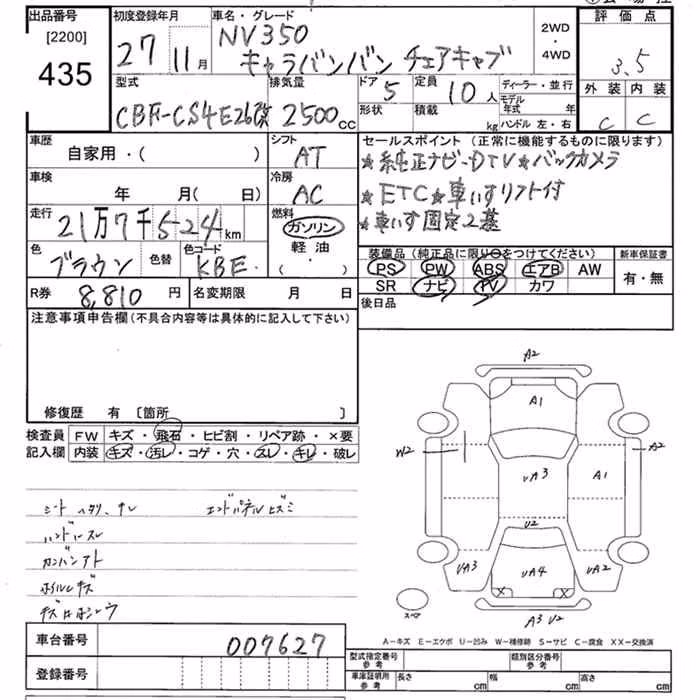 出品番号 初度登録年月 車名・グレード 評価点
[2200] 27 11月 NV350 2WD
435 キャラバンバン チェアキャブ 4WD 3.5
型式 排気量 ドア 5 定員 10人 ディーラー・並行 外装 内装
CBF-CS4E26改 2500cc 形状 積載 kg モデル年式 年 C C
ハンドル 左・右
車歴 シフト セールスポイント (正常に機能するものに限ります)
自家用・( ) AT ★純正ナビ-DTV★バックカメラ
車検 冷房 ★ETC★車いすリフト付
年 月(日) AC ★車いす固定2基
走行 燃料
21万7千524km ガソリン
色 色替 色コード 軽油・ 装備品 (純正品に限り○をつけてください) 新車保証書
ブラウン KBE ( ・ ) PS PW ABS エアB AW 有・無
R券 8,810円 名変期限 月 日 SR ナビ TV カワ
注意事項申告欄 (不具合内容等は具体的に記入して下さい) 後日品
修復歴 有 [箇所 ]
検査員 FW キズ・飛石・ヒビ割・リペア跡・×要
記入欄 内装 キズ・汚レ・コゲ・穴・スレ・キレ・破レ
A2
A1
W2 A2
UA3 A1
U2
UA3 UA4 UA2
X X
A3 U2
スペア
シート ヘタリ、スレ エンドパネルヒズミ
ハンドルスレ
カンバンアト
ホイルキズ
A-キズ E-エクボ U-凹み W-補修跡 S-サビ C-腐食 XX-交換済
車台番号 007627 型式指定番号 参考 類別区分番号 参考
登録番号 車庫証明用 参考 長さ cm 幅 cm 高さ cm